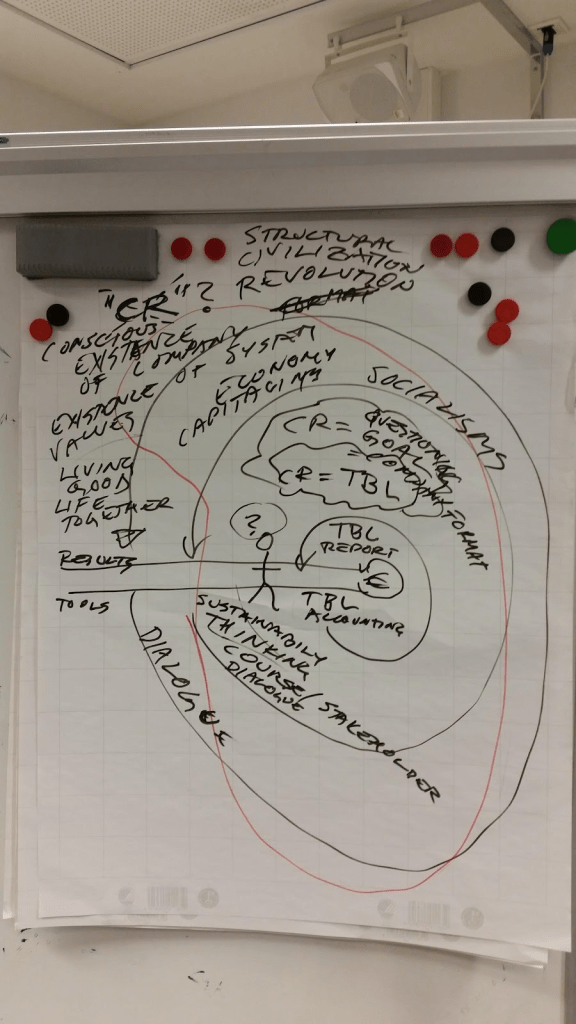 STRUCTURAL
CIVILIZATION
REVOLUTION
FORMAT
"CR"?
CONSCIOUS
EXISTANCE
OF COMPANY
OF SYSTEM
ECONOMY
CAPITALISM
SOCIALISMS
EXISTENCE
VALUES
LIVING
GOOD
LIFE
TOGETHER
CR = QUESTIONING
GOAL
= COMPANY FORMAT
CR = TBL
?
TBL
REPORT
RESULTS
€
TOOLS
TBL
ACCOUNTING
SUSTAINABILY
THINKING
COURSE/STAKEHOLDER
DIALOGUE
DIALOGUE